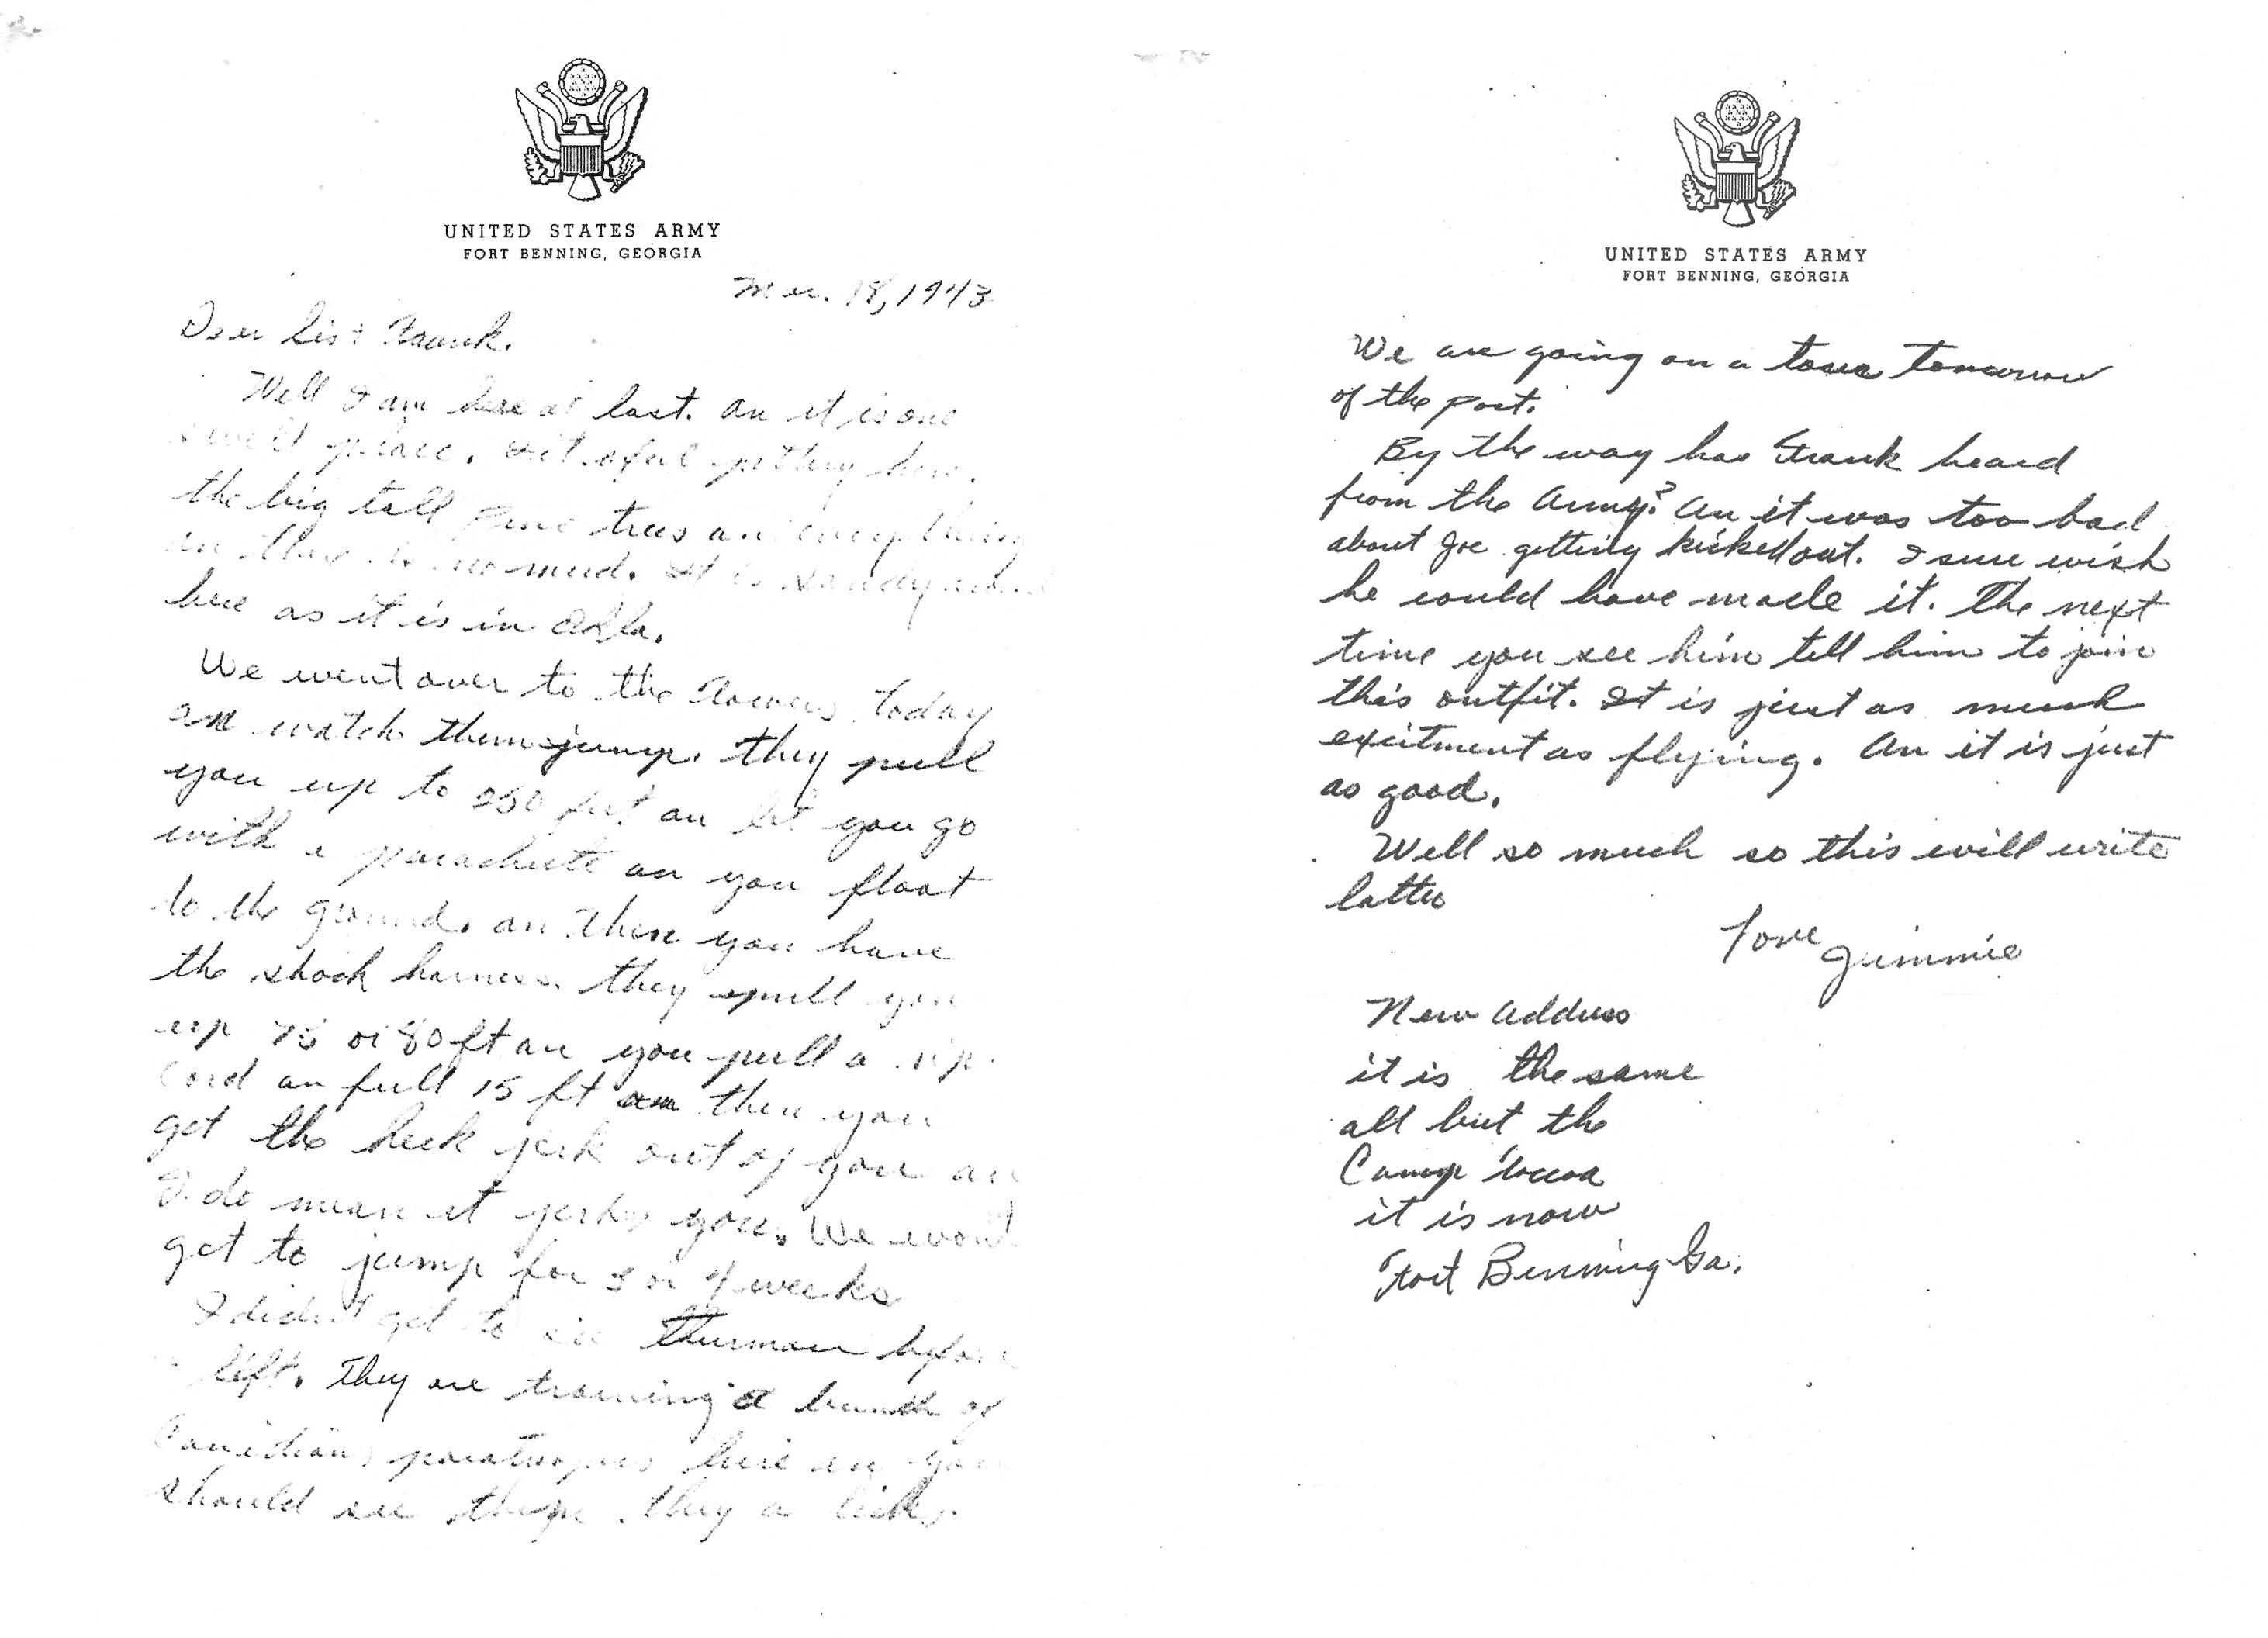 UNITED STATES ARMY
FORT BENNING, GEORGIA
Mar. 18, 1943
Dear Sis & Frank.
Well I am here at last. an it is one
swell place.
the big tall pine trees an everything
an there is no mud. It is sandy
here as it is in Okla.
We went over to the Towers today
an watch them jump. they pull
you up to 250 feet an let you go
with a parachute an you float
to the ground. an then you have
the shock harness. they pull you
up 75 or 80 ft an you pull a rip
cord an full 15 ft an then you
get the heck jerk out of you an
I do mean it jerks you. We wont
get to jump for 3 or 4 weeks
I didn't get to see Thurman before
left. They are training a bunch of
Canidian paratroopers here an you
should see them. they a
UNITED STATES ARMY
FORT BENNING, GEORGIA
We are going on a tour tomorrow
of the post.
By the way has Frank heard
from the Army? An it was too bad
about Joe getting kicked out. I sure wish
he could have made it. The next
time you see him tell him to join
this outfit. It is just as much
excitment as flying. An it is just
as good.
Well so much so this will write
latter
Love Jimmie
New Address
it is the same
all but the
Camp Toccoa
it is now
Fort Benning Ga.